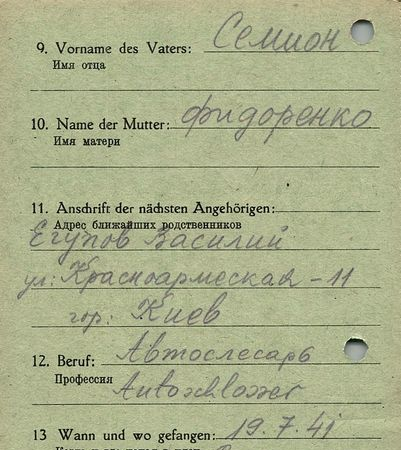 9. Vorname des Vaters: Семион
Имя отца
10. Name der Mutter: Фидоренко
Имя матери
11. Anschrift der nächsten Angehörigen:
Адрес ближайших родственников
Егупов Василий
ул: Красноармеская - 11
гор: Киев
12. Beruf: Автослесарь
Профессия Autoschlosser
13 Wann und wo gefangen: 19.7.41